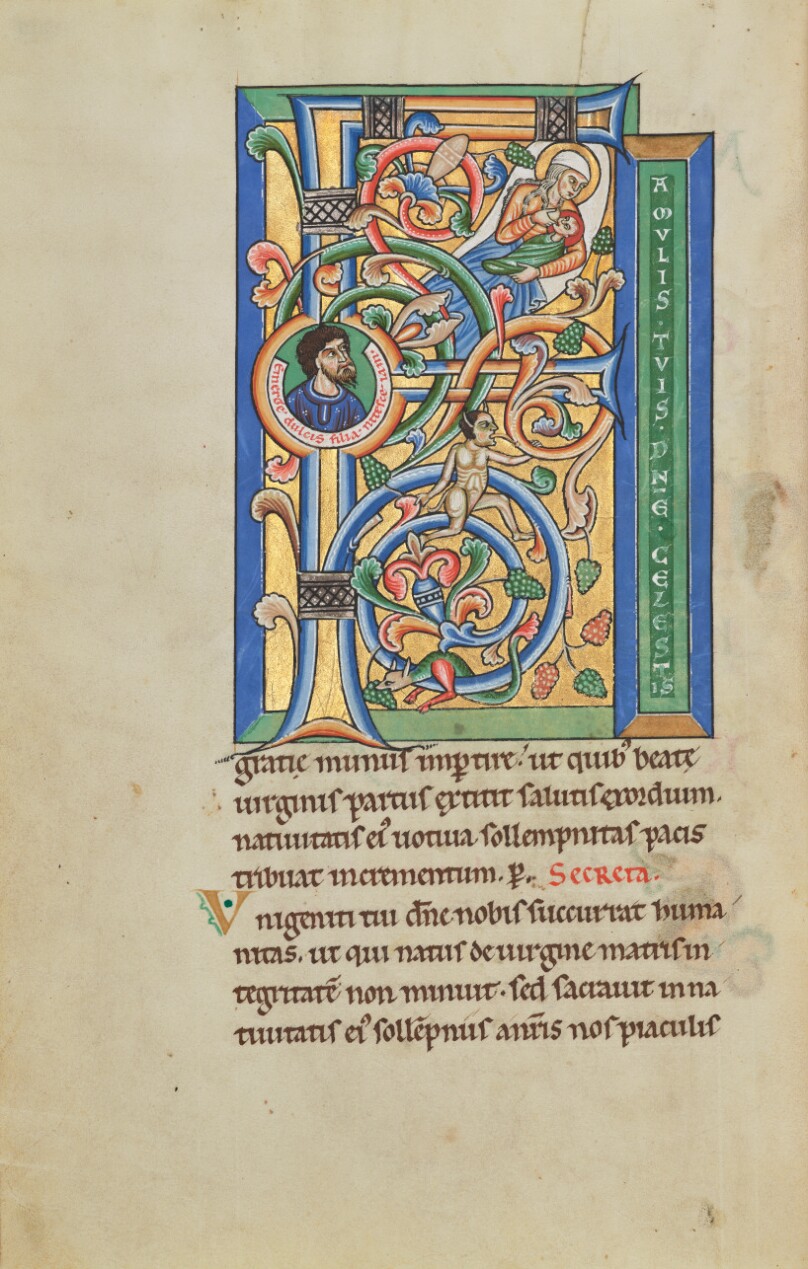 F
AMVLIS·TVIS·DN̄E·CELESTIS
Emerge· dulcis filia· nitesce·iam·
gratię munus imꝑtire: ut quibꝰ beatę
uirginis partus extitit salutis exordium.
natiuitatis eiꝰ uotiua sollempnitas pacis
tribuat incrementum. P̱. Secreta.
Vnigeniti tui dn̄e nobis succurrat huma
nitas. ut qui natus de uirgine matris in
tegritatē non minuit. sed sacrauit in na
tiuitatis eiꝰ sollēpniis a nr̄is nos piaculis